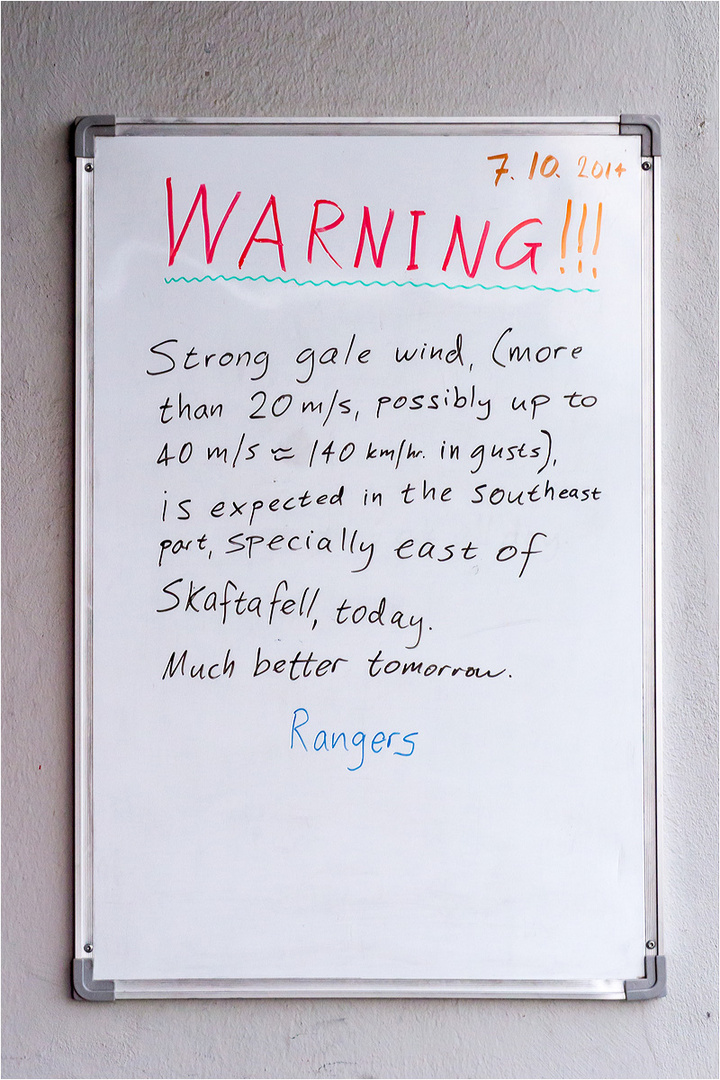 7. 10. 2014
WARNING!!!
Strong gale wind, (more
than 20 m/s, possibly up to
40 m/s ≈ 140 km/hr. in gusts),
is expected in the southeast
part, specially east of
Skaftafell, today.
Much better tomorrow.
Rangers